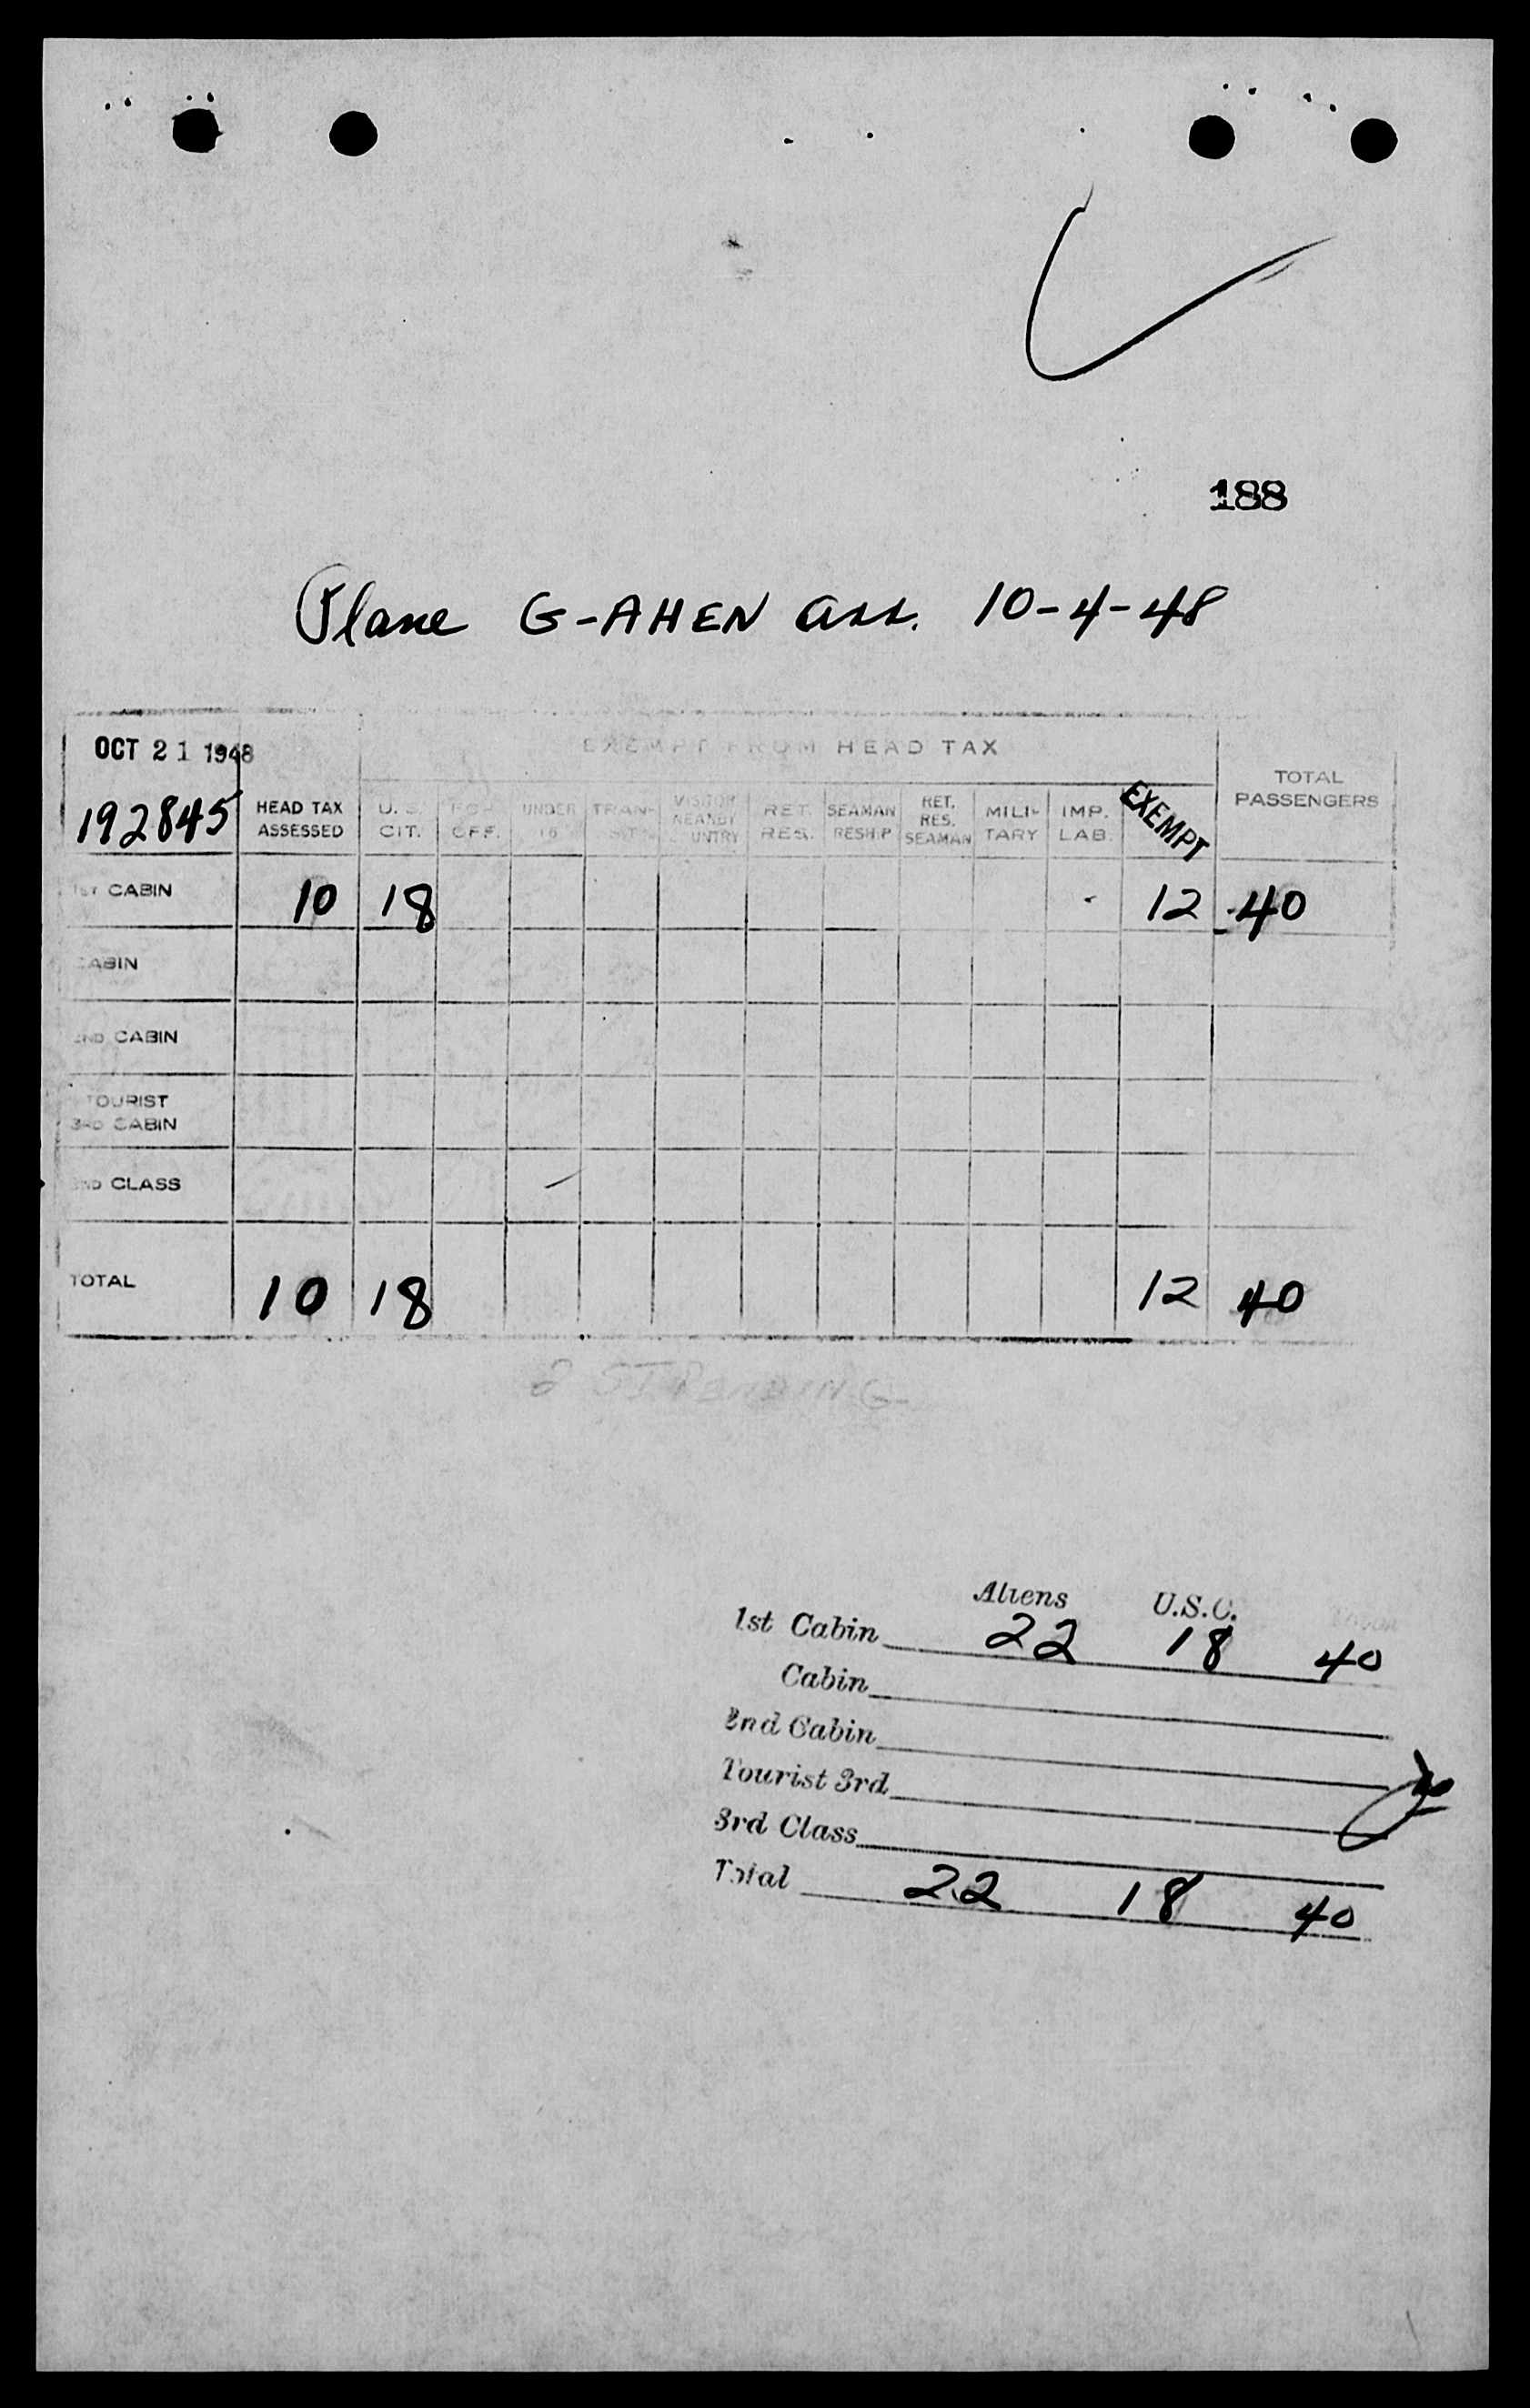 188
Plane G-AHEN arr. 10-4-48
OCT 21 1948
EXEMPT FROM HEAD TAX
TOTAL PASSENGERS
192845
HEAD TAX ASSESSED
U. S. CIT.
FOR. OFF.
UNDER 16
TRAN-SIT
VISITOR NEARBY COUNTRY
RET. RES.
SEAMAN RESHIP
RET. RES. SEAMAN
MILI-TARY
IMP. LAB.
EXEMPT
1ST CABIN 10 18 12 40
CABIN
2ND CABIN
TOURIST
3RD CABIN
CLASS
TOTAL 10 18 12 40
2 SI PENDING
Aliens U.S.C.
1st Cabin 22 18 40
Cabin
2nd Cabin
Tourist 3rd
3rd Class
Total 22 18 40